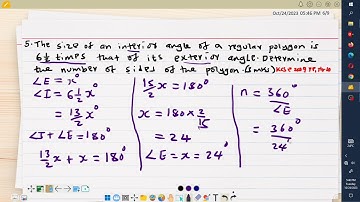 Oct/24/2023 05:46 PM 6/9
5. The size of an interior angle of a regular polygon is
6½ times that of its exterior angle. Determine
the number of sides of the polygon. (3mks)
∠E = x°
∠I = 6½x°
= 13/2 x°
∠I + ∠E = 180°
13/2 x + x = 180°
15/2 x = 180°
x = 180 × 2/15
= 24
∠E = x = 24°
n = 360°/∠E
= 360°/24°